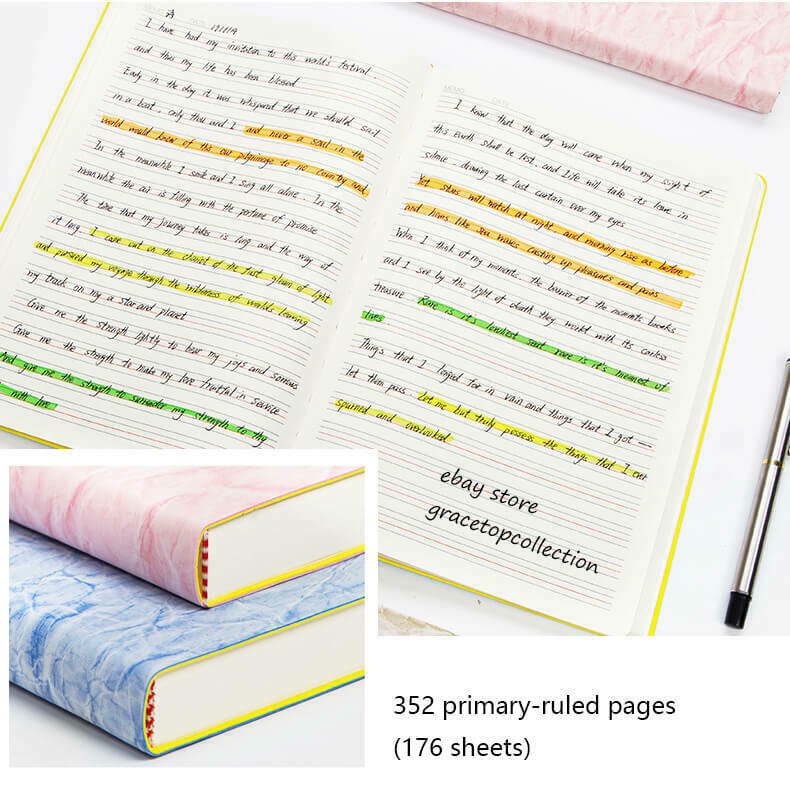 MEMO DATE
I have had my invitation to this world's festival,
and thus my life has been blessed
Early in the day it was whispered that we should sail
in a boat, only thou and I and never a soul in the
world would know of the our pilgrimage to no country and
In the meanwhile I smile and I sing all alone. In the
meanwhile the air is filling with the perfume of promise
The time that my journey takes is long and the way of
it long. I came out on the chariot of the first gleam of light
and pursued my voyage through the wildness of worlds leaving
my track on my a star and planet
Give me the strength lightly to bear my joys and sorrows
Give me the strength to make my love fruitful in service
And give me the strength to surrender my strength to thy
with love
MEMO DATE
I know that the day will come when my sight of
this earth shall be lost, and life will take its leave in
silence, drawing the last curtain over my eyes
Yet stars will watch at night, and morning rise as before,
and hours like sea waves casting up pleasures and pains
When I think of my moments, the barrier of the moments breaks
and I see by the light of death thy world with its careless
treasure Rare is it's lowliest seat, rare is it's meanest of
lives
Things that I longed for in vain and things that I got —
let them pass. Let me but truly possess the things that I ever
spurned and overlooked
ebay store
gracetopcollection
352 primary-ruled pages
(176 sheets)